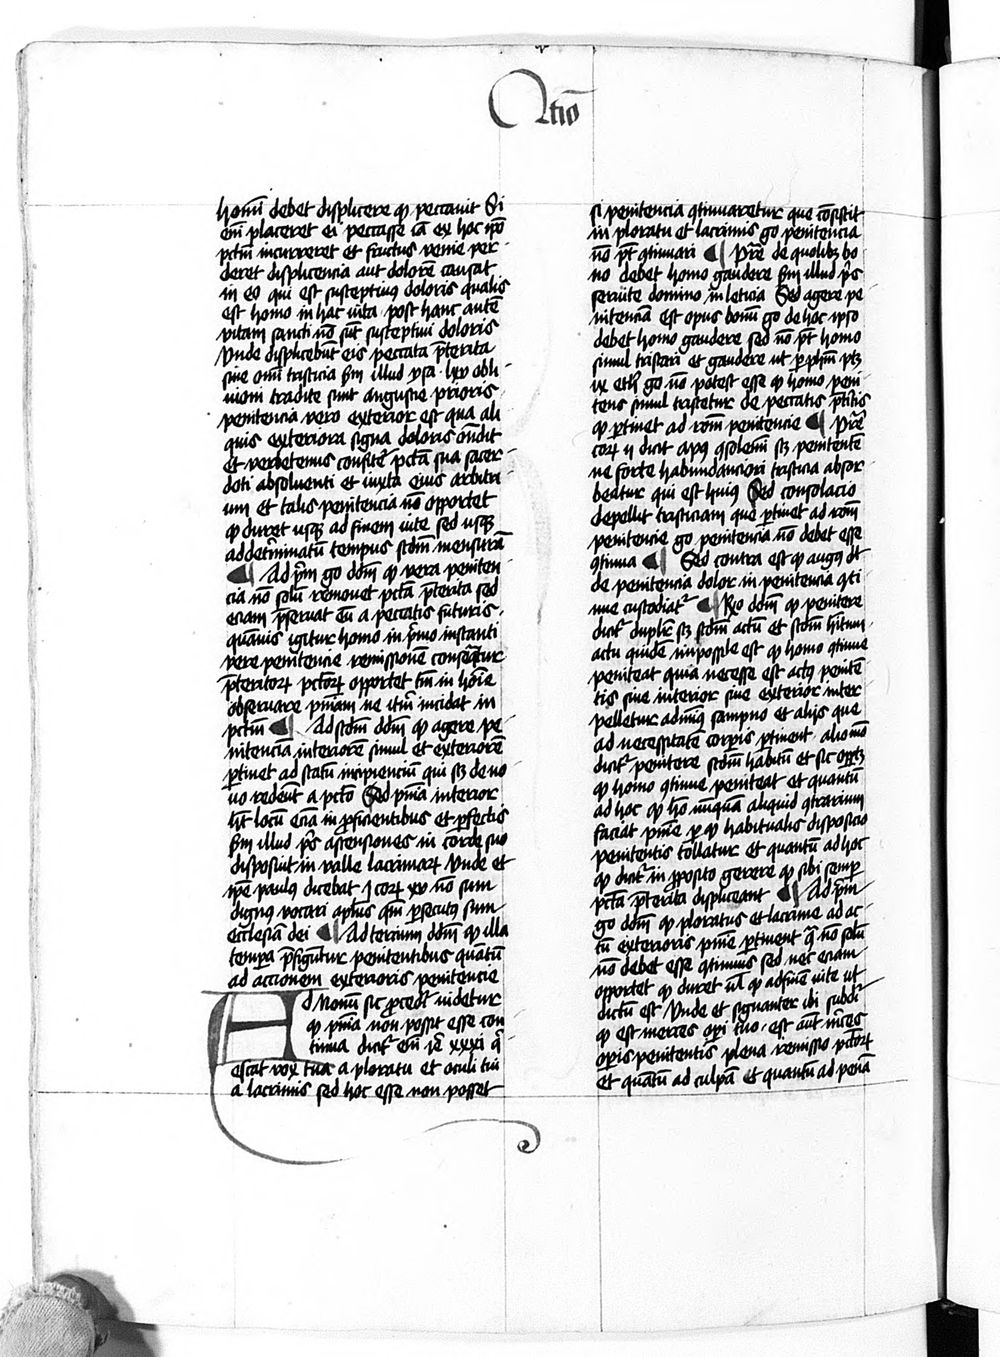 Q̄tio
homī debet displicere qꝫ peccauit Si
em̄ placeret ei peccasse iā ex hoc ipō
pctm̄ incurreret et fructus venie per
deret displicencia aut̄ dolorē causat
in eo qui est susceptiuꝰ doloris qualis
est homo in hac vita post hanc autē
vitam sancti nō sūt susceptiui doloris
Vnde displicebūt eis peccata p̄terita
sine om̄i tristicia ẜm illud ysa · lxv obli
uioni tradite sunt angustie prioris ·
penitencia vero exterior est qua ali
quis exteriora signa doloris ōndit
et verbotenus confitet᷑ pctā sua sacer
doti absoluenti et iuxta eius arbitri
um et talis penitencia nō opportet
qꝫ duret usqꝫ ad finem vite sed usqꝫ
ad det̄minatū tempus scd̄m mensurā
¶ Ad pm̄ gͦ dd̄m qꝫ vera peniten
cia nō solū remouet pctā p̄terita sed
eciam p̄seruat eū a peccatis futuris ·
quāuis igitur homo in p̄mo instanti
vere penitencie remissionē consequtur
p̄teritoꝝ pctoꝝ opportet tn̄ in hoīe
obseruare pn̄iam ne itm̄ incidat in
pctm̄ ¶ Ad scd̄m dd̄m qꝫ agere pe
nitenciā interiorē simul et exteriorē
ꝑtinet ad statū incipienciū qui sꝫ de no
uo redeūt a pctō Sed pn̄ia interior
hꝫ locū eciā in ꝓficientibus et ꝑfectis
ẜm illud ps̄ ascensiones in corde suo
disposuit in valle lacrimaꝝ Vnde et
ip̄e paulꝰ dicebat j coꝝ xv nō sum
dignꝰ vocari apl̄us qm̄ ꝑsecutꝰ sum
ecclesiā dei ¶ Ad tercium dd̄m qꝫ illa
tempa p̄figūtur penitentibus quātū
ad accionem exterioris penitencie
Ad Nonū sic ꝓcedit᷑ videtur
qꝫ pn̄ia non possit esse con
tinua dicit᷑ em̄ ie᷑ xxxi q̄
escat vox tua a ploratu et oculi tui
a lacrimis sed hoc esse non posset
si penitencia ꝯtinuaretur que cōsistit
in ploratu et lacrimis gͦ penitencia
nō pt̄ ꝯtinuari ¶ Pre᷑ de quolibꝫ bo
no debet homo gaudere ẜm illud ps̄
seruite domino in leticia Sed agere pe
nitencia est opus bonū gͦ de hoc ipso
debet homo gaudere sed nō pt̄ homo
simul tristari et gaudere ut ꝑ ph̄m ptꝫ
ix eth̄ gͦ nō potest esse qꝫ homo peni
tens simul tristetur de peccatis p̄titis
qꝫ ꝑtinet ad rōm penitencie ¶ Pre᷑
coꝝ ij dicit apꝰ ꝯsolemī sꝫ penitentē
ne forte habundanciori tristicia absor
beatur qui est huiꝰ Sed consolacio
depellit tristiciam que ꝑtinet ad rōm
penitencie gͦ penitencia nō debet esse
ꝯtinua ¶ Sed contra est qꝫ augꝰ dt̄
de penitencia dolor in penitencia ꝯti
nue custodiat᷑ ¶ Rͦ dd̄m qꝫ penitere
dicit᷑ duplr̄ sꝫ scd̄m actū et scd̄m h̄itum
actu quidē impossile est qꝫ homo ꝯtinue
peniteat quia necesse est actꝰ penitē
tis siue interior siue exterior inter
pelletur admīꝰ sampno et alijs que
ad necessitatē corpis ꝑtinent · alio mō
dicit᷑ penitere scd̄m habitū et sic opptꝫ
qꝫ homo ꝯtinue peniteat et quantū
ad hoc qꝫ hō nūquā aliquid ꝯtrarium
faciat pn̄ie ꝑ qꝫ habitualis disposicio
penitentis tollatur et quantū ad hoc
qꝫ dicit᷑ in ꝓposito gerere qꝫ sibi semp
pctā p̄terita displiceant ¶ Ad pm̄
gͦ dd̄m qꝫ ploratus et lacrime ad ac
tū exterioris pn̄ie ꝑtinent q̄ nō solū
nō debet esse ꝯtinuus sed nec eciam
opportet qꝫ duret usqꝫ ad finē vite ut
dictū est Vnde et signanter ibi subdit᷑
qꝫ est merces opi tuo · est aūt m̄ces
opis penitentis plena remissio pctōꝝ
et quātū ad culpā et quantū ad penā